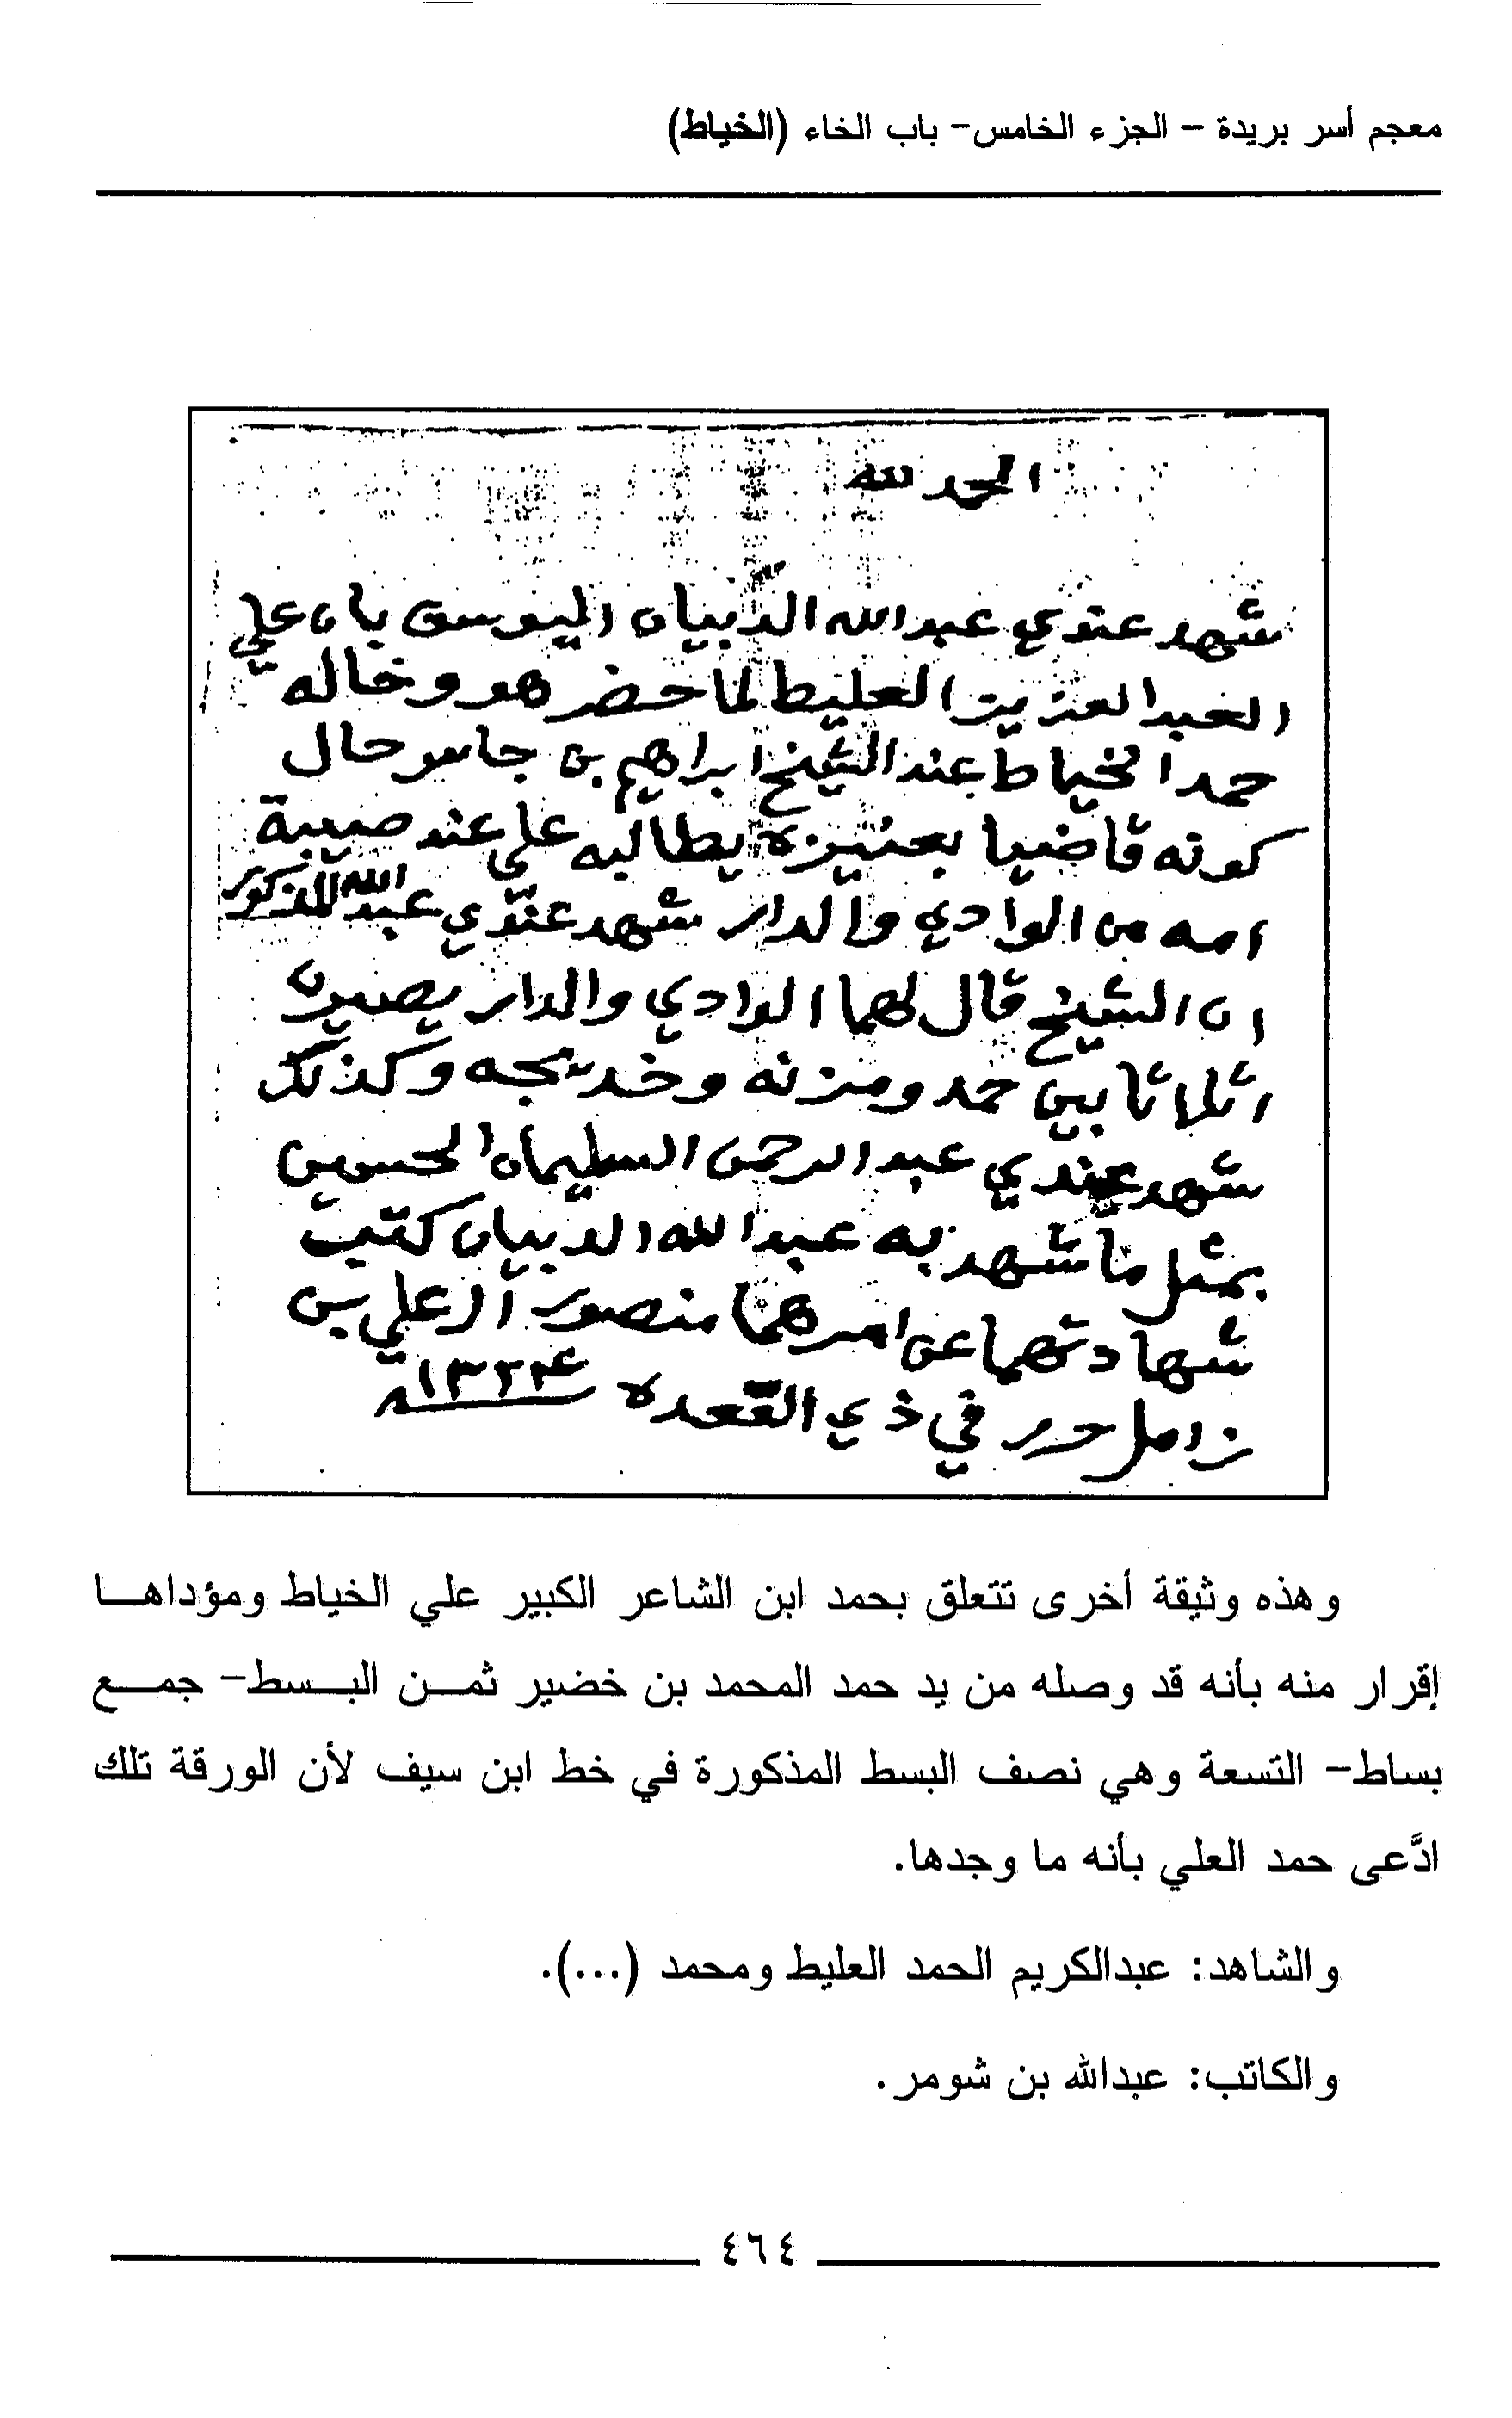 معجم أسر بريدة – الجزء الخامس- باب الخاء (الخياط)
الحمد لله
شهد عندي عبدالله الدبيان بان علي
العبدالعزيز العليط لما حضر هو وخاله
حمد الخياط عند الشيخ ابراهيم بن جاسر حال
كونه قاضيا بعنيزه يطالبه علي عند صيبة
امه من الوادي والدار شهد عندي عبدالله المذكور
ان الشيخ قال لهما الوادي والدار يصيرن
اثلاثا بين حمد ومزنه وخديجه وكذلك
شهد عندي عبدالرحمن السليمان الحسين
بمثل ما شهد به عبدالله الدبيان كتب
شهادتهما عن امرهما منصور ال علي بن
زامل حرر في ذي القعده ١٣٢٤
وهذه وثيقة أخرى تتعلق بحمد ابن الشاعر الكبير علي الخياط ومؤداها
إقرار منه بأنه قد وصله من يد حمد المحمد بن خضير ثمن البسط- جمع
بساط- التسعة وهي نصف البسط المذكورة في خط ابن سيف لأن الورقة تلك
ادَّعى حمد العلي بأنه ما وجدها.
والشاهد: عبدالكريم الحمد العليط ومحمد (...).
والكاتب: عبدالله بن شومر.
٤٦٤